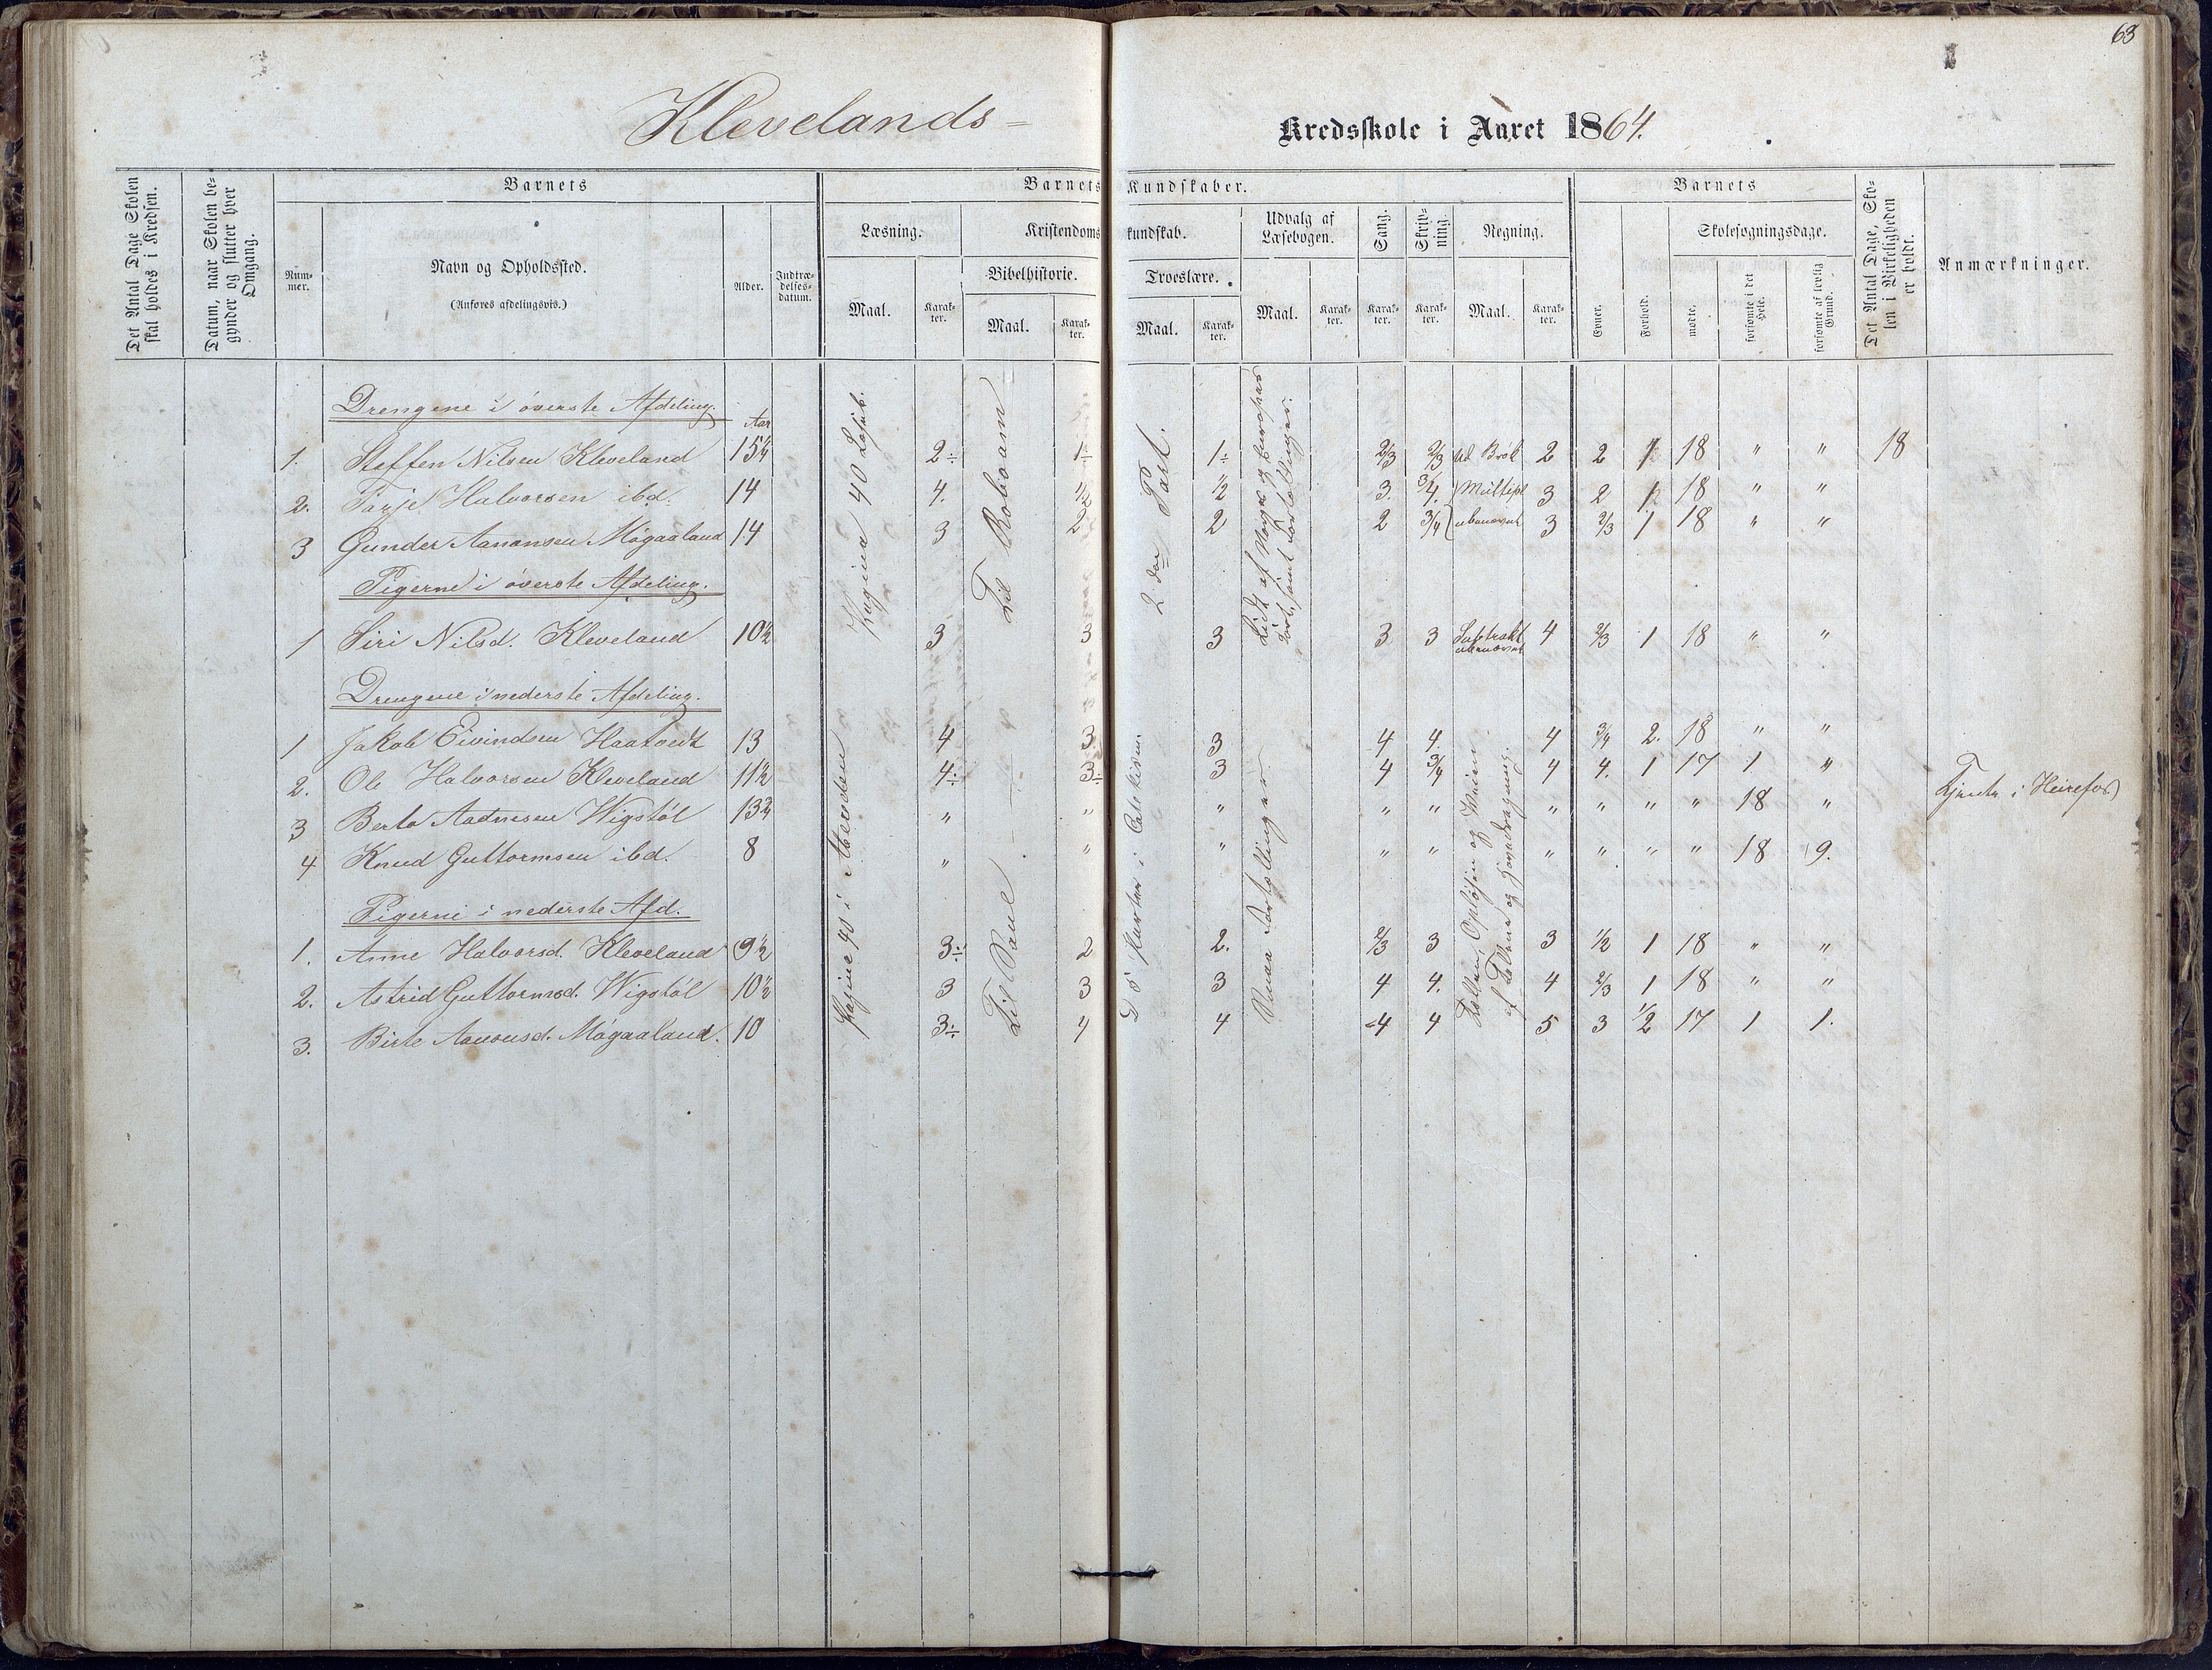 63
Klevelands-
Kredsskole i Aaret 1864.
Det Antal Dage Skolen skal holdes i Kredsen.
Datum, naar Skolen begynder og slutter hver Omgang.
Barnets
Barnets Kundskaber.
Barnets
Det Antal Dage, Skolen i Virkeligheden er holdt.
Anmærkninger.
Nummer.
Navn og Opholdssted.
(Anføres afdelingsvis.)
Alder.
Indtrædelsesdatum.
Læsning.
Kristendomskundskab.
Udvalg af Læsebogen.
Sang.
Skrivning.
Regning.
Skolesøgningsdage.
Bibelhistorie.
Troeslære.
Maal. Karakter. Maal. Karakter. Maal. Karakter. Maal. Karakter. Karakter. Karakter. Maal. Karakter.
Evner. Forhold. mødte. forsømte i det Hele. forsømte af lovlig Grund.
Drengene i øverste Afdeling.
Aar
1. Steffen Nilsen Kleveland 15¼ 2÷ 1÷ 1÷ 2/3 2/3 Brøk 2 2 1 18 " " 18
2. Tarje Halvorsen ibd. 14 4. 1/2 1/2 3. 3/4. Multipl 3 2 1 18 " "
3 Gunder Aanonsen Møgaaland 14 3 2 2 2 3/4 ubenævnt 3 2/3 1 18 " "
Pigerne i øverste Afdeling.
1 Siri Nilsd. Kleveland 10½ 3 3 3 3 3 Subtrakt ubenævnt 4 2/3 1 18 " "
40
Til Roboam
2den Part.
Lidt af Norges og Europas
samt Fortællinger.
Drengene i nederste Afdeling.
1 Jakob Eivindsen Haatvedt 13 4 3 3 4 4. 4 3/4 2. 18 " "
2. Ole Halvorsen Kleveland 11½ 4÷ 3÷ 3 4 3/4 4 4. 1 17 1 "
3 Aadnesen Wigstøl 13¾ " " " " " " " " " 18 " Tjente i Heirefos
4 Knud Guttormsen ibd. 8 " " " " " " " " " 18 9.
Pigerne i nederste Afd.
1. Anne Halvorsd. Kleveland 9½ 3÷ 2 2. 2/3 3 3 1/2 1 18 " "
2. Astrid Guttormsd. Wigstøl 10½ 3 3 3 4 4. 4 2/3 1 18 " "
3. Birte Aanonsd. Møgaaland. 10 3÷ 4 4 4 4 5 3 1/2 17 1 1.
Pagina 40 i
Til
De 5 Parter i Katekism.
Smaa Fortællinger
af Tallene og